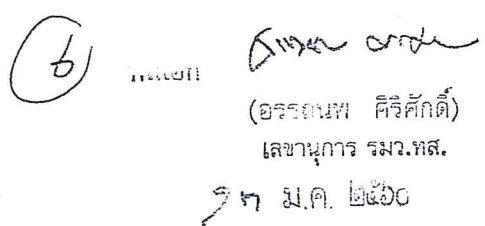 ๖
พันเอก
(อรรถนพ ศิริศักดิ์)
เลขานุการ รมว.ทส.
๑๓ ม.ค. ๒๕๖๐